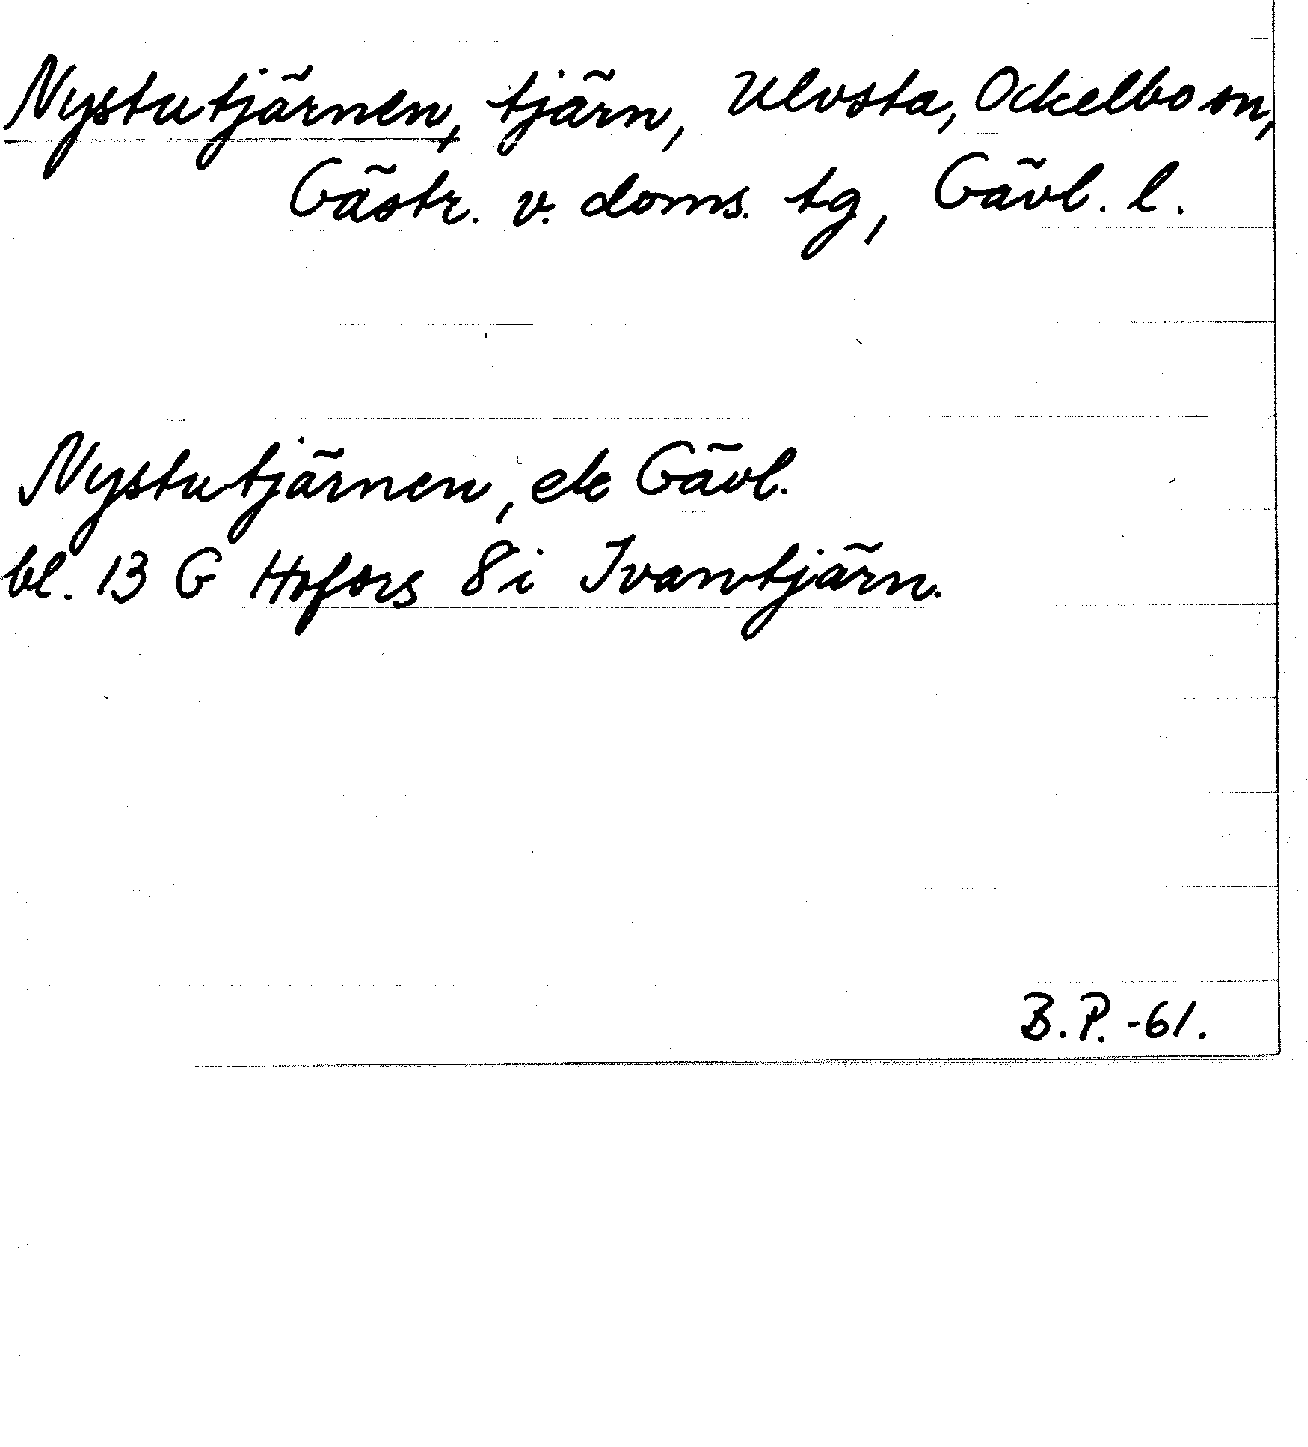 Nystutjärnen, tjärn, Ulvsta, Ockelbo sn,
Gästr. v. doms. tg, Gävl. l.
Nystutjärnen, ek Gävl.
bl. 13 G Hofors 8 i Ivantjärn.
B.P. -61.